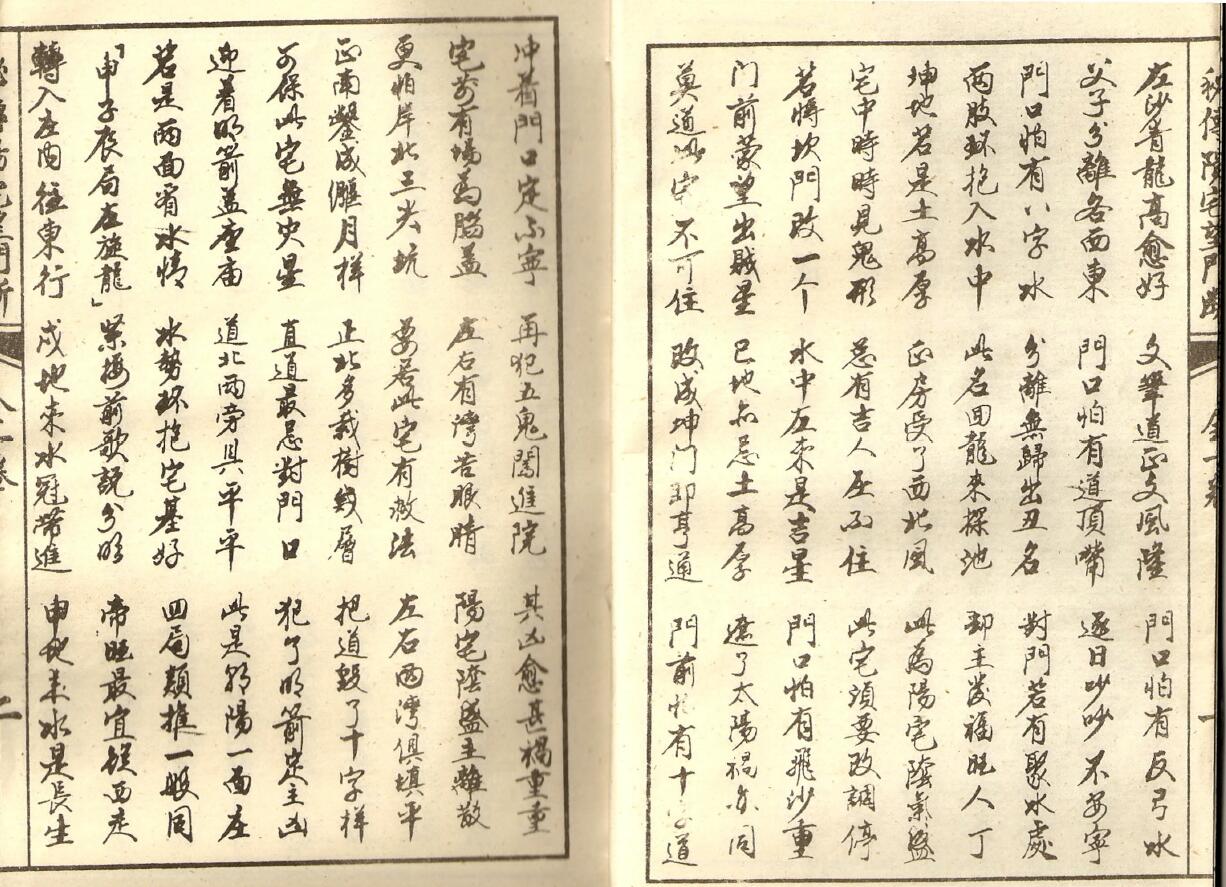 秘傳陽宅望門斷
全一卷
一
左沙青龍高愈好 文筆道正文風隆 門口怕有反弓水
父子分離各西東 門口怕有道頂嘴 逐日吵吵不安寧
門口怕有八字水 分離無歸出丑名 對門若有聚水處
兩肢環抱入水中 此名回龍來探池 却主發福旺人丁
坤地若是土高厚 正房受了西北風 此為陽宅陰氣盛
宅中時時見鬼形 总有吉人压不住 此宅須要改調停
若將坎門改一个 水中左來是吉星 門口怕有飛沙重
門前蒙望出賊星 巳地亦忌土高厚 遮了太陽禍亦同
莫道此宅不可住 改成坤門即亨通 門前怕有十字道
冲着門口定不寧 再犯五鬼闖進院 其凶愈甚禍重重
宅前有場為腦蓋 左右有灣苦眼睛 陽宅陰盛主離散
更怕岸北三尖坑 要若此宅有救法 左右兩灣俱填平
正南鑿成偃月樣 正北多栽樹幾層 把道毀了十字樣
可保此宅無灾星 直道最忌對門口 犯了明箭定主凶
迎着明箭蓋座廟 道北兩旁具平平 此是邪陽一面左
若是兩面有水情 水勢环抱宅基好 四局類推一般同
「申子辰局左旋龍」 緊接前歌説分明 帝旺最宜娱西走
轉入左向往東行 戌地来水冠帶進 申地来水是長生
二